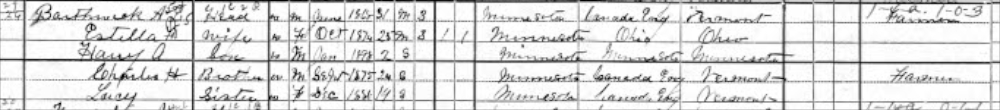 Head w M June 31 M 3 Minnesota Canada Eng Vermont Farmer
Estella M Wife w F Oct 1874 25 M 3 1 1 Minnesota Ohio Ohio
Harry A Son w M Jan 1898 2 S Minnesota Minnesota Minnesota
Charles H Brother w M Sept 1875 24 S Minnesota Canada Eng Vermont Farmer
Lucy Sister w F Dec 1880 19 S Minnesota Canada Eng Vermont